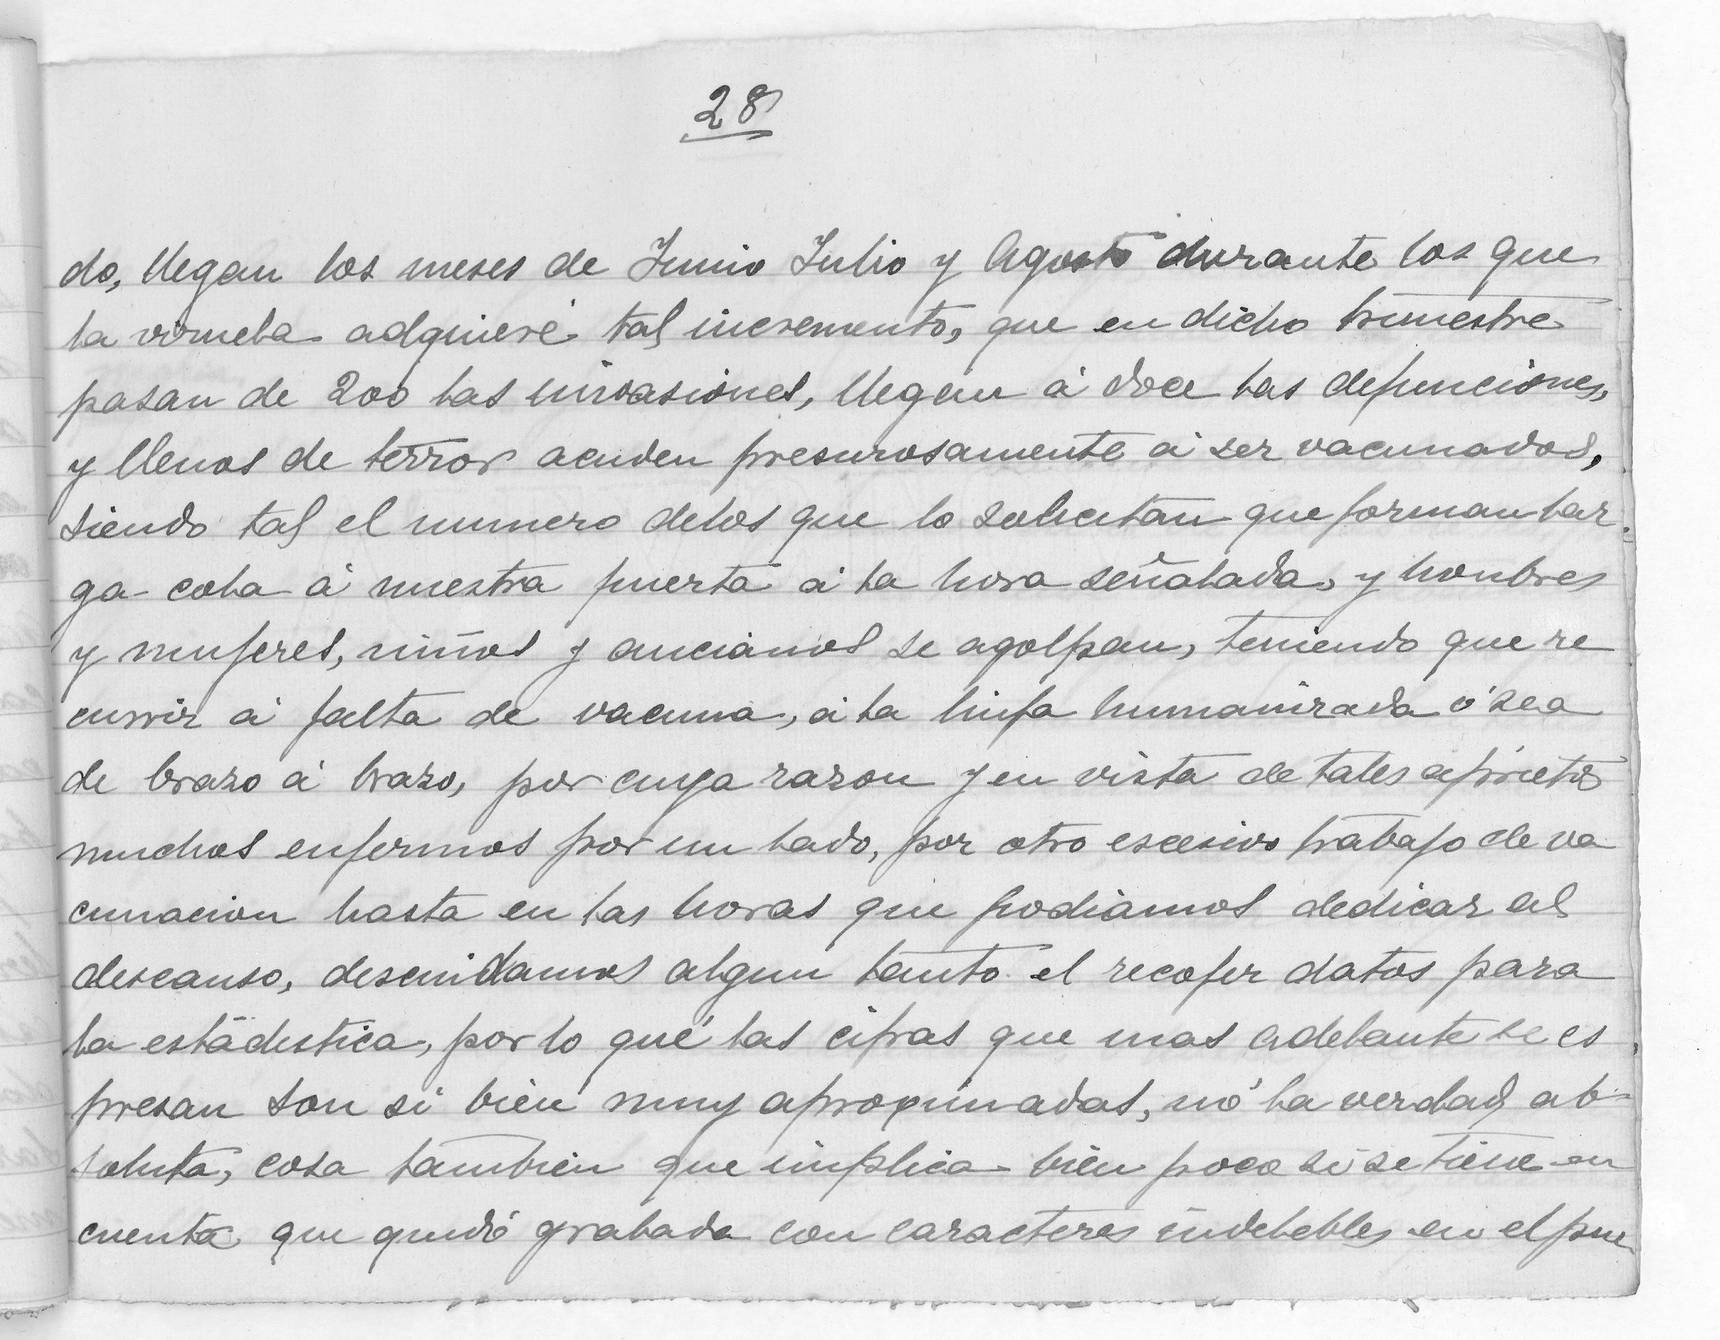 28
do, llegan los meses de Junio Julio y Agosto durante los que
la viruela adquiere tal incremento, que en dicho trimestre
pasan de 200 las invasiones, llegan á doce las defunciones,
y llenos de terror acuden presurosamente á ser vacunados,
siendo tal el numero delos que lo solicitan que forman lar-
ga cola á nuestra puerta á la hora señalada, y hombres
y mujeres, niños y ancianos se agolpan, teniendo que re
currir á falta de vacuna, á la linfa humanizada ó sea
de brazo á brazo, por cuya razon y en vista de tales aprietos
muchos enfermos por un lado, por otro escesivo trabajo de va
cunacion hasta en las horas que podiamos dedicar al
descanso, descuidamos algun tanto el recojer datos para
la estadistica, por lo que las cifras que mas adelante se es
presan son si bien muy aproximadas, nó la verdad ab-
soluta, cosa tambien que implica bien poco si se tiene en
cuenta que quedó grabada con caracteres indelebles en el pue